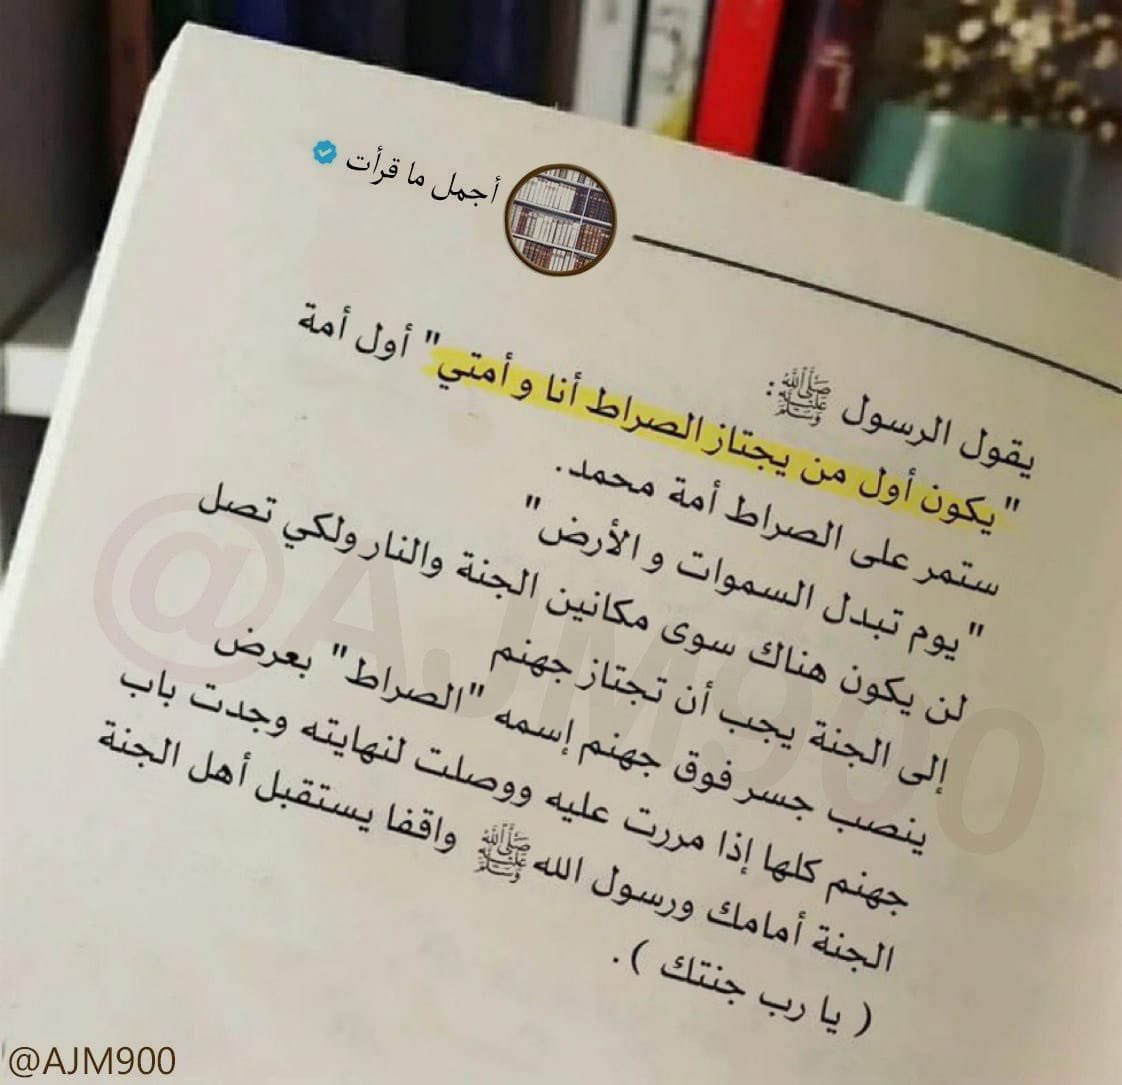 أجمل ما قرأت
يقول الرسول ﷺ:
" يكون أول من يجتاز الصراط أنا و أمتي" أول أمة
ستمر على الصراط أمة محمد.
" يوم تبدل السموات و الأرض"
لن يكون هناك سوى مكانين الجنة والنار ولكي تصل
إلى الجنة يجب أن تجتاز جهنم
ينصب جسر فوق جهنم إسمه "الصراط" بعرض
جهنم كلها إذا مررت عليه ووصلت لنهايته وجدت باب
الجنة أمامك ورسول الله ﷺ واقفا يستقبل أهل الجنة
( يا رب جنتك ).
@AJM900
@AJM900